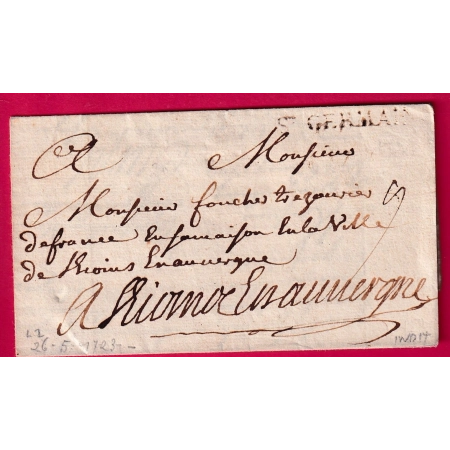 St GERMAIN
A Monsieur
Monsieur foucher trezorier
de france En sa maison En la Ville
de Rioms En auvergne
A Riom En auvergne
L2
26-5-1723-